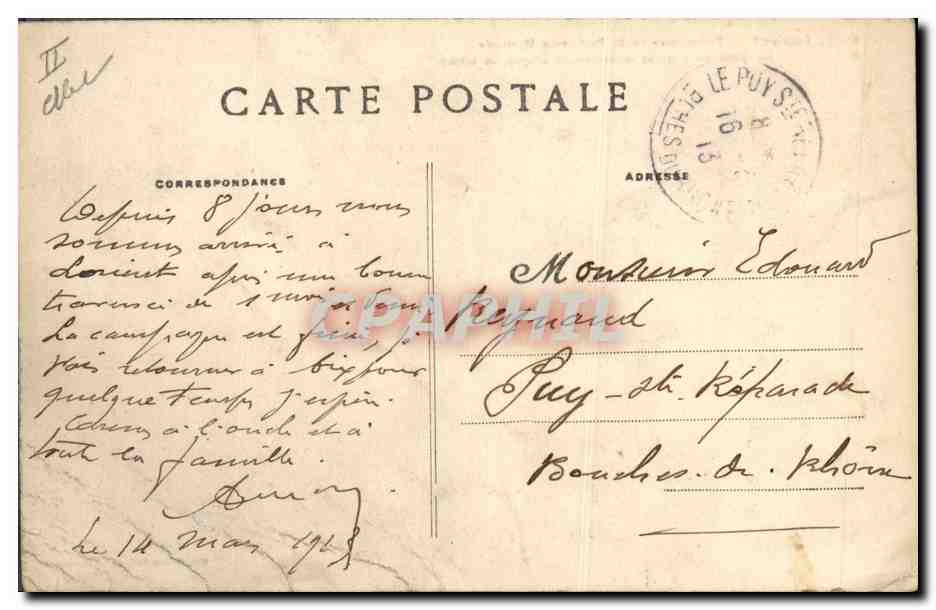 II
CARTE POSTALE
LE PUY STE RÉ
BCHES DU
8
16
13
CORRESPONDANCE
ADRESSE
Depuis 8 jours nous
sommes arrivé à
Lorient après une bonne
traversée de 1 mois et demi
La campagne est finie, je
vais retourner à
quelque temps j'espère.
à l'oncle et à
toute la famille.
Le 14 mai 1913
Monsieur Edouard
Reynaud
Puy-ste. Réparade
Bouches-du-Rhône
CPAPHIL